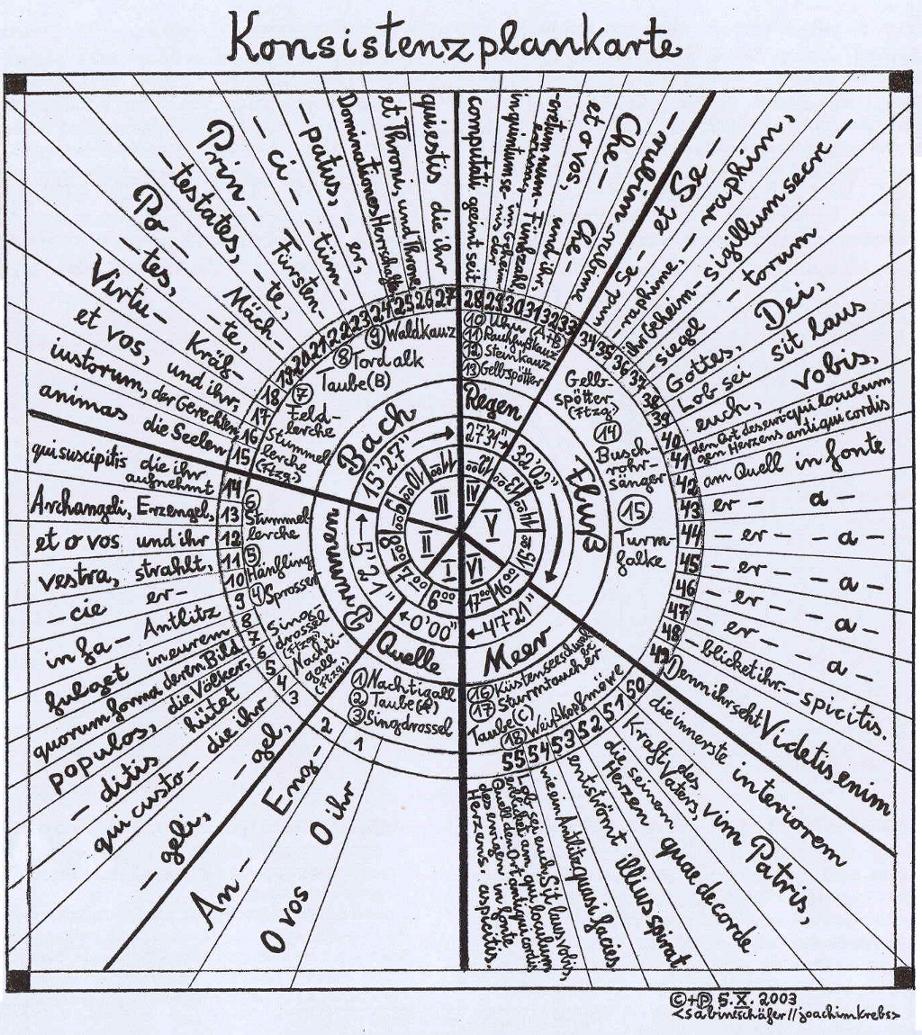 Konsistenzplankarte
O vos
O ihr
An-
Eng-
- geli,
- gel,
qui custo-
die ihr
- ditis
hütet
populos,
die Völker,
quorum forma
deren Bild
fulget
in eurem
in fa-
Antlitz
- cie
er-
vestra,
strahlt,
et o vos
und ihr
Archangeli,
Erzengel,
qui suscipitis
die ihr aufnehmt
animas
die Seelen
iustorum,
der Gerechten,
et vos,
und ihr,
Virtu-
Kräf-
- tes,
- te,
Po-
Mäch-
- testates,
- te,
Prin-
Fürsten-
- ci -
- tüm-
- patus,
- er,
Dominationes
Herrschaften
et Throni,
und Throne,
qui estis
die ihr
computati
geeint seit
et o vos,
und ihr
Che-
Che-
- rubim
- rubime
et Se-
und Se-
- raphim,
- raphime,
sigillum secre-
ihr Geheim-
- torum
- siegel
Dei,
Gottes,
sit laus
Lob sei
vobis,
euch,
qui loculum
antiqui cordis
in fonte
am Quell
er -
- a -
- er -
- a -
- er -
- a -
- er -
- a -
- er -
- a -
- blicket ihr.
- spicitis.
Denn ihr seht
Videtis enim
die innerste
interiorem
Kraft des Vaters,
vim Patris,
die seinem Herzen
quae de corde
entströmt
illius spirat
wie ein Antlitz.
quasi facies.
Lob sei euch,
Sit laus vobis,
1
2
3
4
5
6
7
8
9
10
11
12
13
14
15
16
17
18
19
20
21
22
23
24
25
26
27
28
29
30
31
32
33
34
35
36
37
38
39
40
41
42
43
44
45
46
47
48
49
50
51
52
53
54
55
① Nachtigall
② Taube (A)
③ Singdrossel
Nachti-
gall
(Ftzg.)
Sing-
drossel
(Ftzg.)
④ Sprosser
⑤ Hänfling
⑥ Stummel-
lerche
Stummel-
lerche
(Ftzg.)
⑦ Feld-
lerche
Taube (B)
⑧ Tordalk
⑨ Waldkauz
⑩ Uhu (A+B)
⑪ Rauhfußkauz
⑫ Steinkauz
⑬ Gelbspötter
Gelb-
spötter
(Ftzg.)
⑭ Busch-
rohr-
sänger
⑮ Turm-
falke
⑯ Küstenseeschwalbe
⑰ Sturmtaucher
Taube (C)
⑱ Weißkopfmöwe
Quelle
Brennung
Bach
Regen
Fluß
Meer
0'00"
5'21"
15'27"
27'31"
32'02"
47'21"
I
II
III
IV
V
VI
©+℗ 5. X. 2003
<sabineschäfer//joachimkrebs>